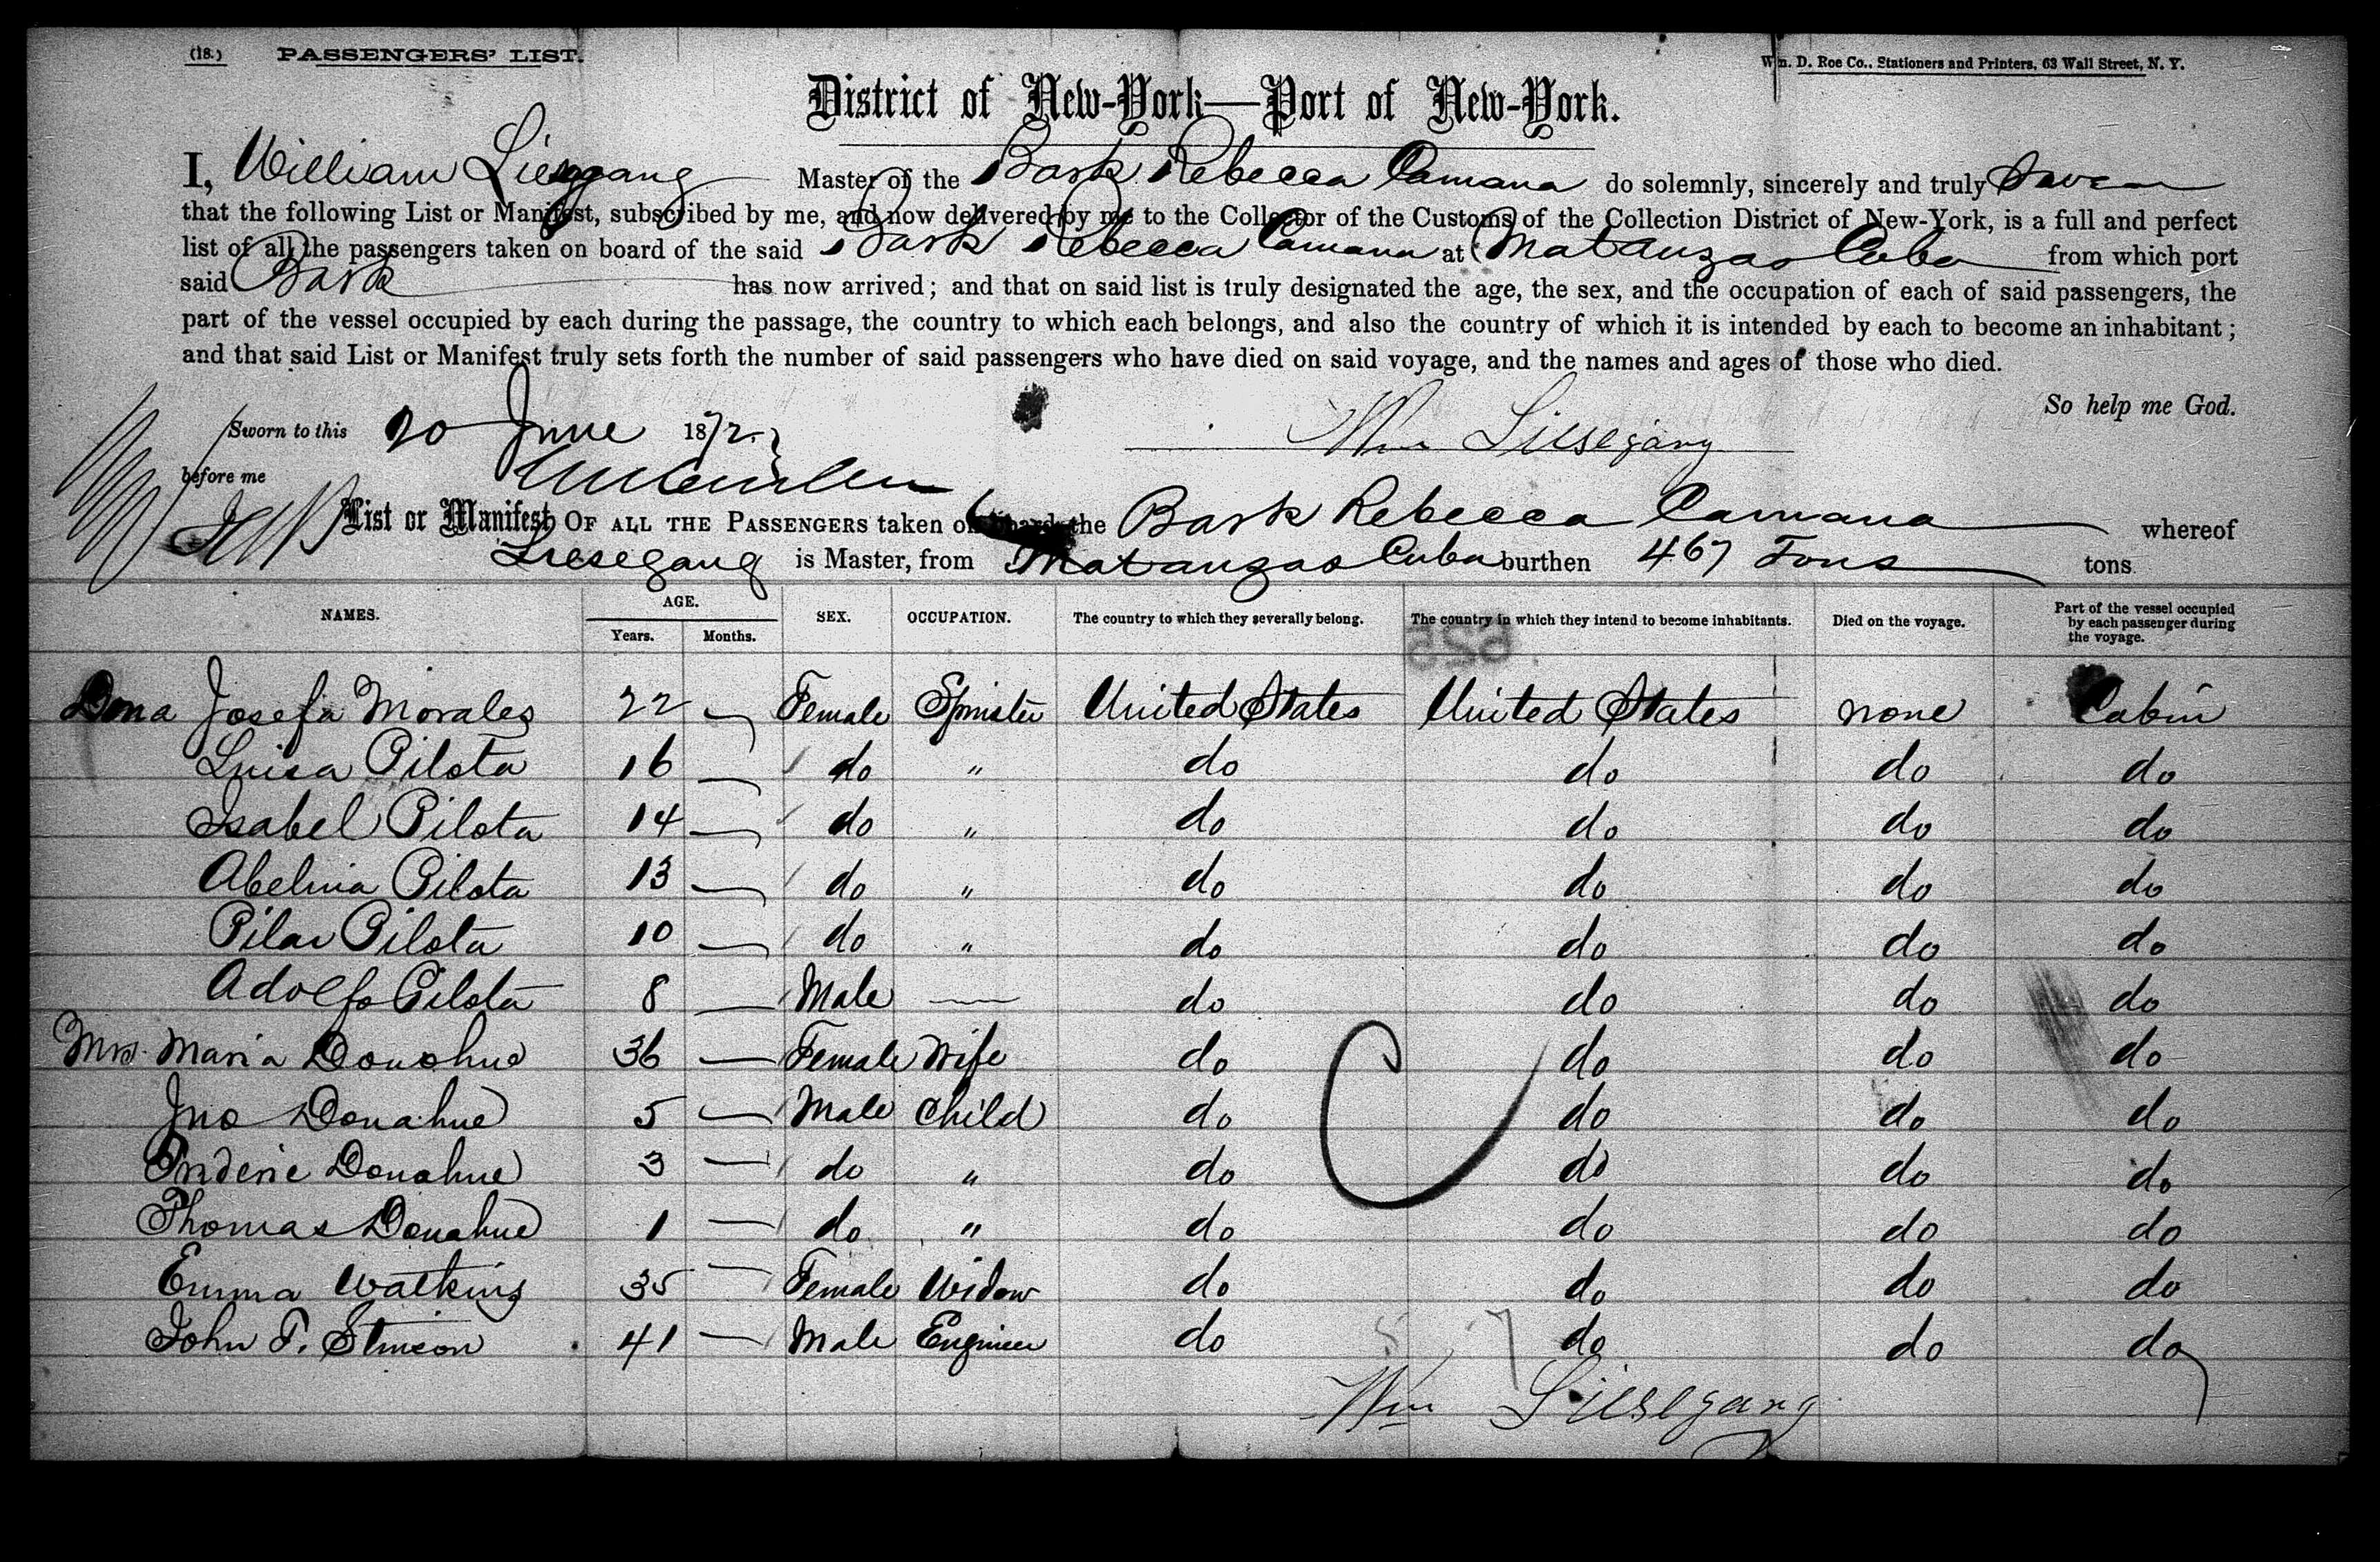 (18.) PASSENGERS' LIST.
Wm. D. Roe Co., Stationers and Printers, 63 Wall Street, N. Y.
District of New-York—Port of New-York.
I, William Liesegang Master of the Bark Rebecca Camana do solemnly, sincerely and truly Swear
that the following List or Manifest, subscribed by me, and now delivered by me to the Collector of the Customs of the Collection District of New-York, is a full and perfect
list of all the passengers taken on board of the said Bark Rebecca Camana at Matanzas Cuba from which port
said Bark has now arrived; and that on said list is truly designated the age, the sex, and the occupation of each of said passengers, the
part of the vessel occupied by each during the passage, the country to which each belongs, and also the country of which it is intended by each to become an inhabitant;
and that said List or Manifest truly sets forth the number of said passengers who have died on said voyage, and the names and ages of those who died.
So help me God.
Sworn to this 20 June 1872.
Wm Liesegang
before me
List or Manifest OF ALL THE PASSENGERS taken on board the Bark Rebecca Camana whereof
Liesegang is Master, from Matanzas Cuba burthen 467 Tons tons
NAMES. AGE. Years. Months. SEX. OCCUPATION. The country to which they severally belong. The country in which they intend to become inhabitants. Died on the voyage. Part of the vessel occupied by each passenger during the voyage.
625
Dona Josefa Morales 22 — Female Spinster United States United States none Cabin
Luisa Pilota 16 — do " do do do do
Isabel Pilota 14 — do " do do do do
Abelina Pilota 13 — do " do do do do
Pilar Pilota 10 — do " do do do do
Adolfo Pilota 8 — Male — do do do do
Mrs. Maria Donohue 36 — Female Wife do do do do
Jno Donahue 5 — Male Child do do do do
Donahue 3 — do " do do do do
Thomas Donahue 1 — do " do do do do
Emma Watkins 35 — Female Widow do do do do
John T. Stinson 41 — Male Engineer do do do do
Wm Liesegang